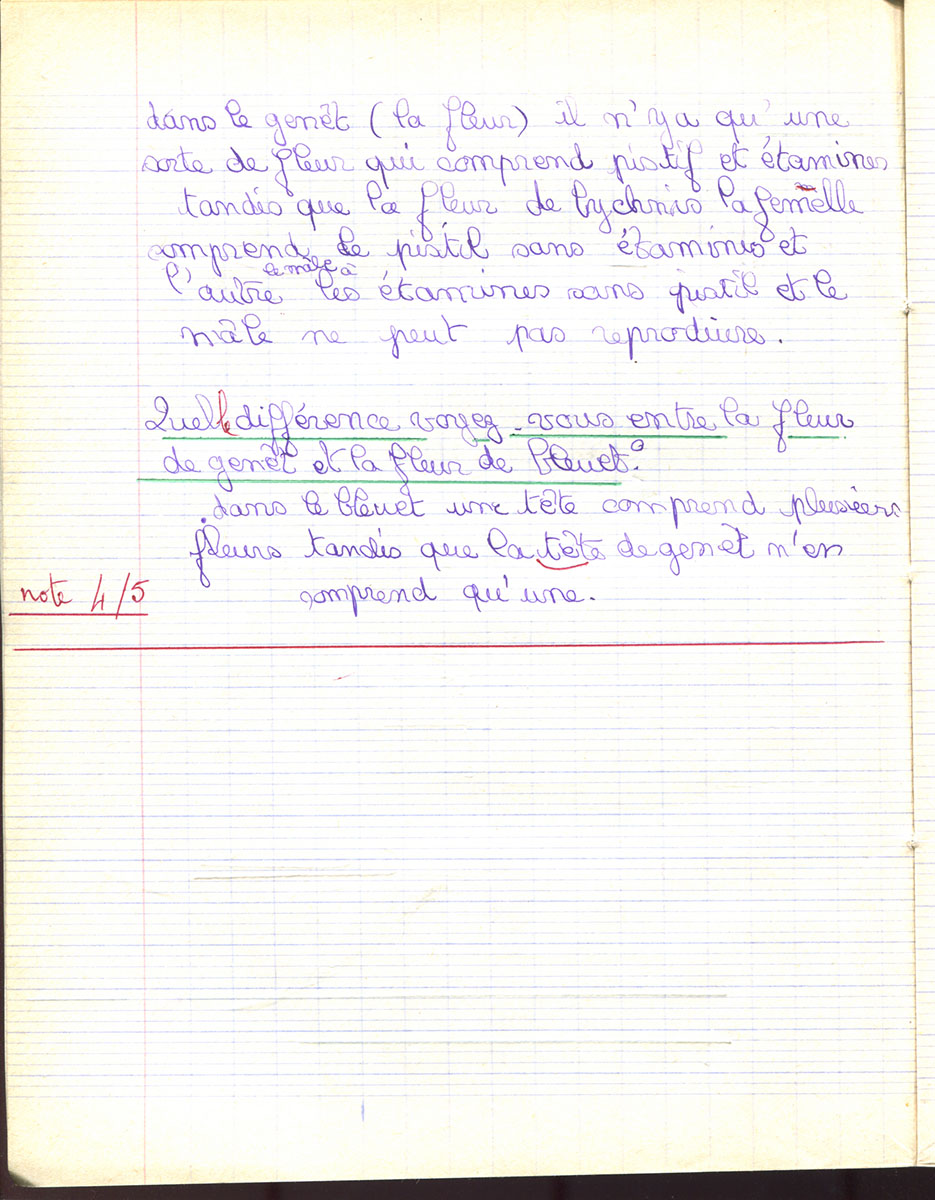 dans le genêt (la fleur) il n'ya qu'une
sorte de fleur qui comprend pistil et étamines
tandis que la fleur de lychnis la femelle
comprend le pistil sans étamines et
le mâle à
l'autre les étamines sans pistil et le
mâle ne peut pas reproduire.
Quelle différence voyez-vous entre la fleur
de genêt et la fleur de bleuet?
dans le bleuet une tête comprend plusieurs
fleurs tandis que la tête de genêt n'en
note 4/5
comprend qu'une.